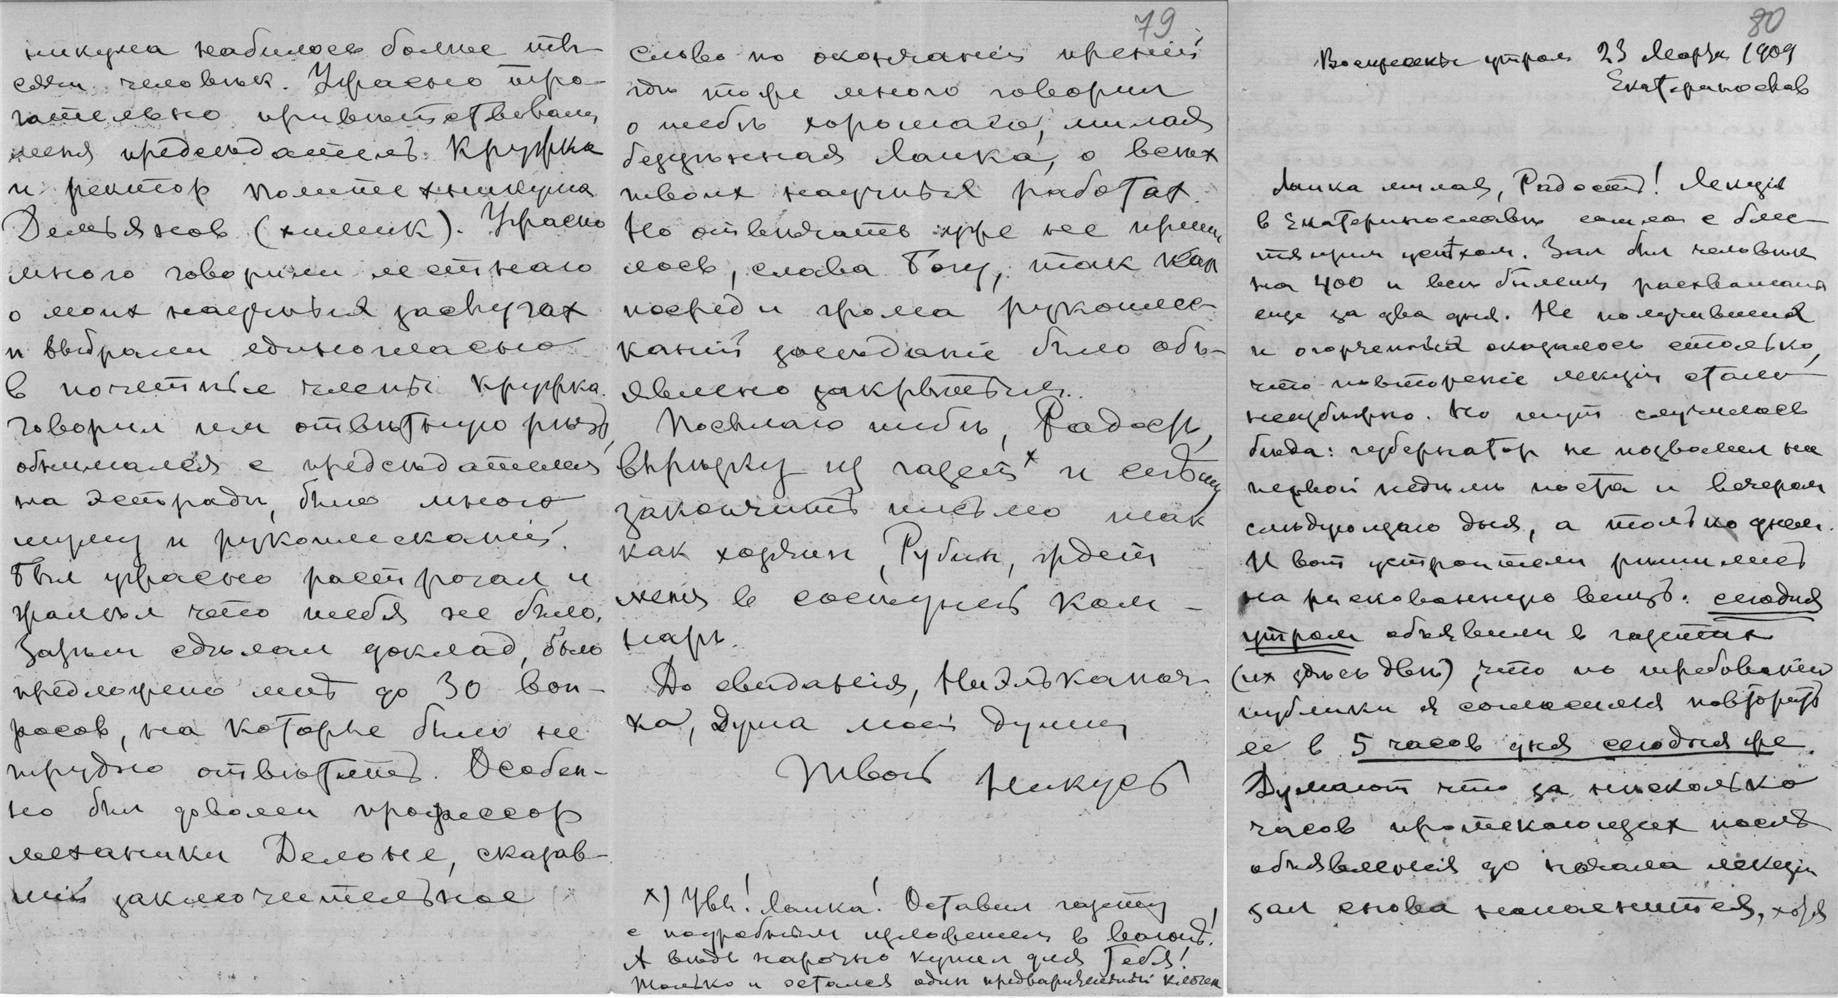 никума набилось больше ты-
сячи человѣк. Ужасно тро-
гательно привѣтствовали
меня предсѣдатель Кружка
и ректор политехникума
Дементьев (химик). Ужасно
много говорили лестнаго
о моих научных заслугах
и выбрали единогласно
в почетные члены кружка.
Говорил им отвѣтную рѣчь,
обнимался с предсѣдателем
на эстрадѣ, было много
шуму и рукоплесканий.
Был ужасно растроган и
жалѣл что тебя не было.
Затѣм сдѣлал доклад, было
предложено мнѣ до 30 воп-
росов, на которые было не
трудно отвѣтить. Особен-
но был доволен профессор
механики Делоне, сказав-
ший заключительное
79
слово по окончании прений
гдѣ тоже много говорил
о тебѣ хорошаго, милая
безцѣнная Лапка, о всѣх
твоих научных работах.
Но отвѣчать уже не приш-
лось, слава Богу, так как
посреди грома рукоплес-
каний засѣданіе было объ-
явлено закрытым.
Посылаю тебѣ, Радость,
вырѣзку из газет x и спѣшу
закончить письмо так
как хозяин, Рубин, ждет
меня в сосѣдней ком-
натѣ.
До свиданія, Ниэльканоч-
ка, душа моей души
Твой Никусь
x) Увы! Лапка! Оставил газету
с подробным изложением в вагонѣ!
А вѣдь нарочно купил для Тебя!
Только и остался один предварительный клочек
80
Воскресенье утром 23 Марта 1909
Екатеринослав
Лапка милая, Радость! Лекція
в Екатеринославѣ сошла с блес-
тящим успѣхом. Зал был человѣк
на 400 и всѣ билеты расхватали
еще за два дня. Не получивших
и огорченных оказалось столько,
что повтореніе лекціи стало
неизбѣжно. Но тут случилась
бѣда: губернатор не позволил на
первой недѣлѣ поста и вечером
слѣдующаго дня, а только днем.
И вот устроители рѣшились
на рискованную вещь: сегодня
утром объявили в газетах
(их здѣсь двѣ), что по требованію
публики я согласился повторить
ее в 5 часов дня сегодня же.
Думают что за нѣсколько
часов протекающих послѣ
объявленія до начала лекціи
зал снова наполнится, хотя